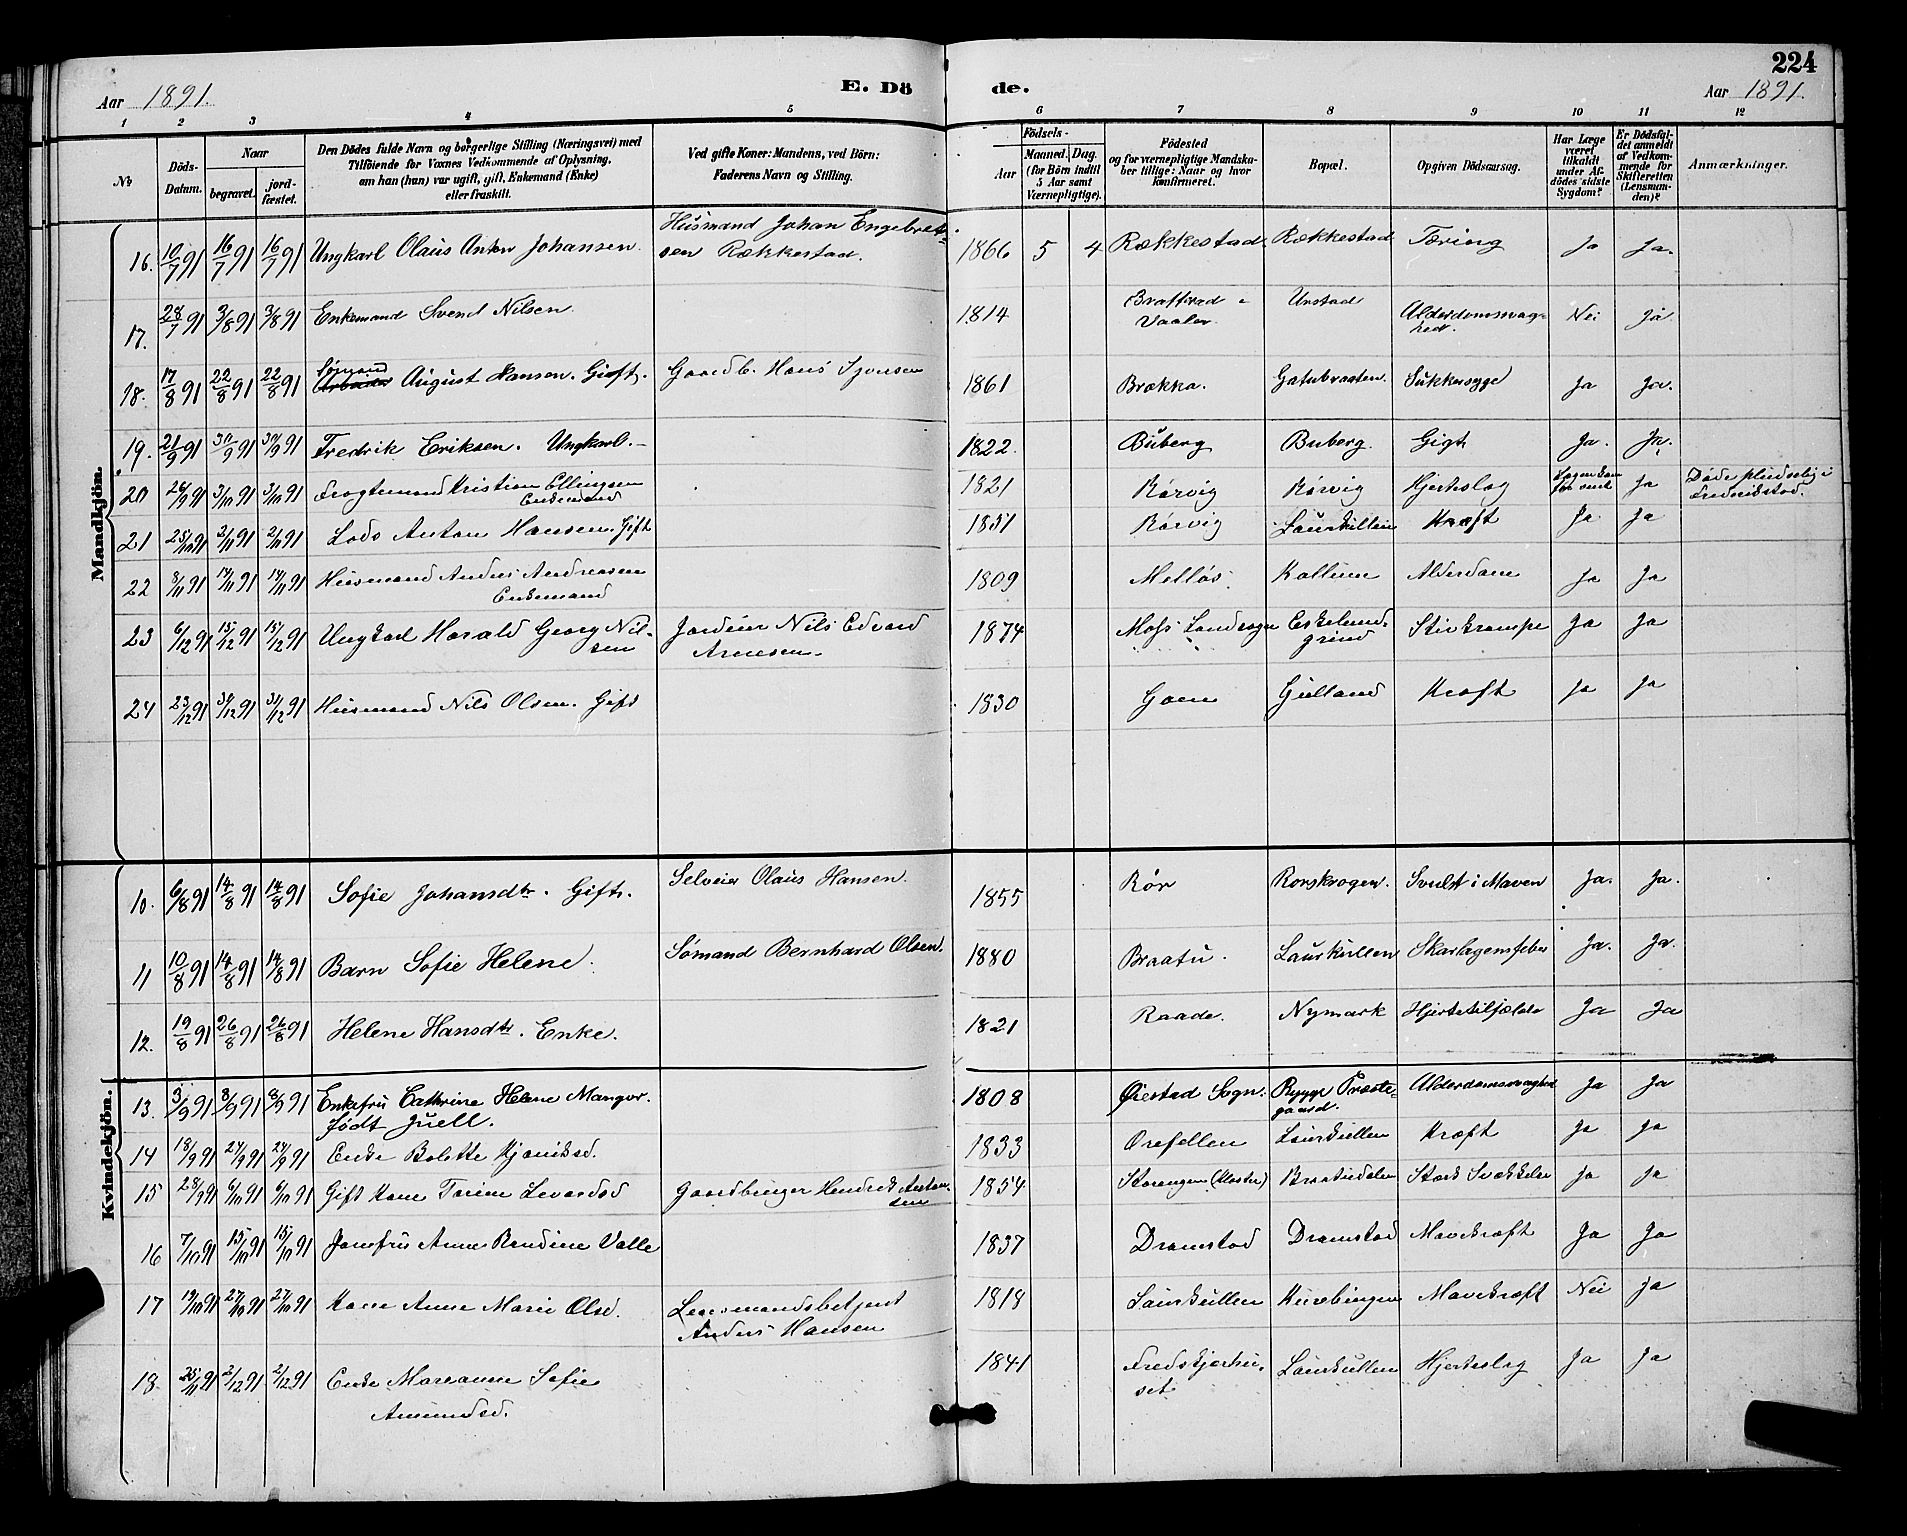 224
Aar 1891.
E. Dö
de.
Aar 1891.
1 2 3 4 5 6 7 8 9 10 11 12
№
Döds-Datum.
Naar
begravet.
jord-fæstet.
Den Dödes fulde Navn og borgerlige Stilling (Næringsvei) med
Tilföiende for Voxnes Vedkommende af Oplysning,
om han (hun) var ugift, gift, Enkemand (Enke)
eller fraskilt.
Ved gifte Koner: Mandens, ved Börn:
Faderens Navn og Stilling.
Födsels-
Aar
Maaned. Dag.
(for Börn indtil
5 Aar samt
Værnepligtige).
Födested
og for værnepligtige Mandska-
ber tillige: Naar og hvor
konfirmeret.
Bopæl.
Opgiven Dödsaarsag.
Har Læge
været
tilkaldt
under Af-
dödes sidste
Sygdom?
Er Dödsfal-
det anmeldt
af Vedkom-
mende for
Skifteretten
(Lensman-
den)?
Anmærkninger.
Mandkjön.
16. 10/7 91 16/7 91 16/7 91 Ungkarl Olaus Anton Johansen. Husmand Johan Engebret-
sen Rækkestad. 1866 5 4 Rækkestad Rækkestad Tæring Ja Ja.
17. 28/7 91 3/8 91 3/8 91 Enkemand Svend Nilsen 1814 i Vaaler. Unstad Alderdomssvag-
hed. Nei Ja
18. 17/8 91 22/8 91 22/8 91 Sømand Arbeider August Hansen. Gift. Gaardb. Hans 1861 Brækka. Sukkersyge Ja Ja.
19. 21/9 91 30/9 91 30/9 91 Fredrik Eriksen. Ungkarl. 1822. Buberg Buberg. Gigt Ja. Ja.
20 26/9 91 3/10 91 3/10 91 Fragtemand Kristian Ellingsen
Enkemand 1821 Rørvig Rørvig Hjerteslag Ja Døde pludselig i
Fredrikstad.
21 25/10 91 2/11 91 2/11 91 Lods Anton Hansen. Gift 1851 Rørvig Laurkullen Kræft Ja Ja
22 8/11 91 14/11 91 14/11 91 Husmand Anders Andreasen
Enkemand 1809 Melløs Kallum Alderdom Ja Ja
23 6/12 91 15/12 91 15/12 91 Ungkarl Harald Georg Nil-
sen Nils Edvard
Arnesen. 1874 Moss Landsogn Eskelund-
grind Stivkrampe Ja Ja
24 23/12 91 31/12 91 31/12 91 Husmand Nils Olsen. Gift 1830 Goen Gulland Kræft Ja Ja
Kvindekjön.
10. 6/8 91 14/8 91 14/8 91 Sofie Johansdtr. Gift. Selveier Olaus Hansen. 1855 Rør Rørskrogen. Svulst i Maven Ja. Ja.
11 10/8 91 14/8 91 14/8 91 Barn Sofie Helene. Sømand Bernhard Olsen. 1880 Braatu. Laurkullen Skarlagensfeber Ja. Ja.
12. 19/8 91 26/8 91 26/8 91 Helene Hansdtr. Enke. 1821 Raade. Nymark Hjertetilfælde Ja Ja
13. 3/9 91 8/9 91 8/9 91 Enkefru Cathrine Helene Mangor.
født Juell. 1808 Øiestad Sogn. Rygge Præste-
gaard. Alderdomssvaghed Ja Ja
14 18/9 91 24/9 91 24/9 91 Enke Bolette 1833 Orefellen Laurkullen Kræft Ja Ja
15 28/9 91 6/10 91 6/10 91 Gift Kone Torine Gaardbruger Hendrik Anton-
sen 1854 Storengen (Kloster) Braatudalen Stærk Svækkelse Ja Ja
16 7/10 91 15/10 91 15/10 91 Jomfru Anne Randine Valle 1837 Dramstad Dramstad Mavekræft Ja Ja
17 19/10 91 27/10 91 27/10 91 Kone Anne Marie Olsd. Lensmandsbetjent
Anders Hansen 1818 Laurkullen Kurebingen Mavekræft Nei Ja
18. 25/11 91 2/12 91 2/12 91 Enke Marianne Sofie
Amundsd. 1841 Fredskjærhu-
set Laurkullen Hjerteslag Ja Ja